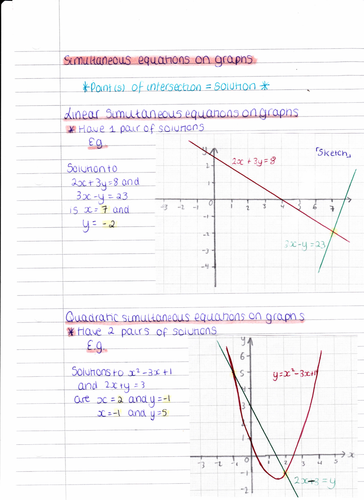 Simultaneous equations on graphs
*Point(s) of intersection = Solution *
Linear Simultaneous equations on graphs
* Have 1 pair of solutions
E.g.
Solution to
2x + 3y = 8 and
3x - y = 23
is x = 7 and
y = -2
2x + 3y = 8
"Sketch"
x - y = 23
Quadratic simultaneous equations on graphs
* Have 2 pairs of solutions
E.g.
Solutions to x² - 3x + 1
and 2x + y = 3
are x = 2 and y = -1
x = -1 and y = 5
y = x² - 3x + 1
= y